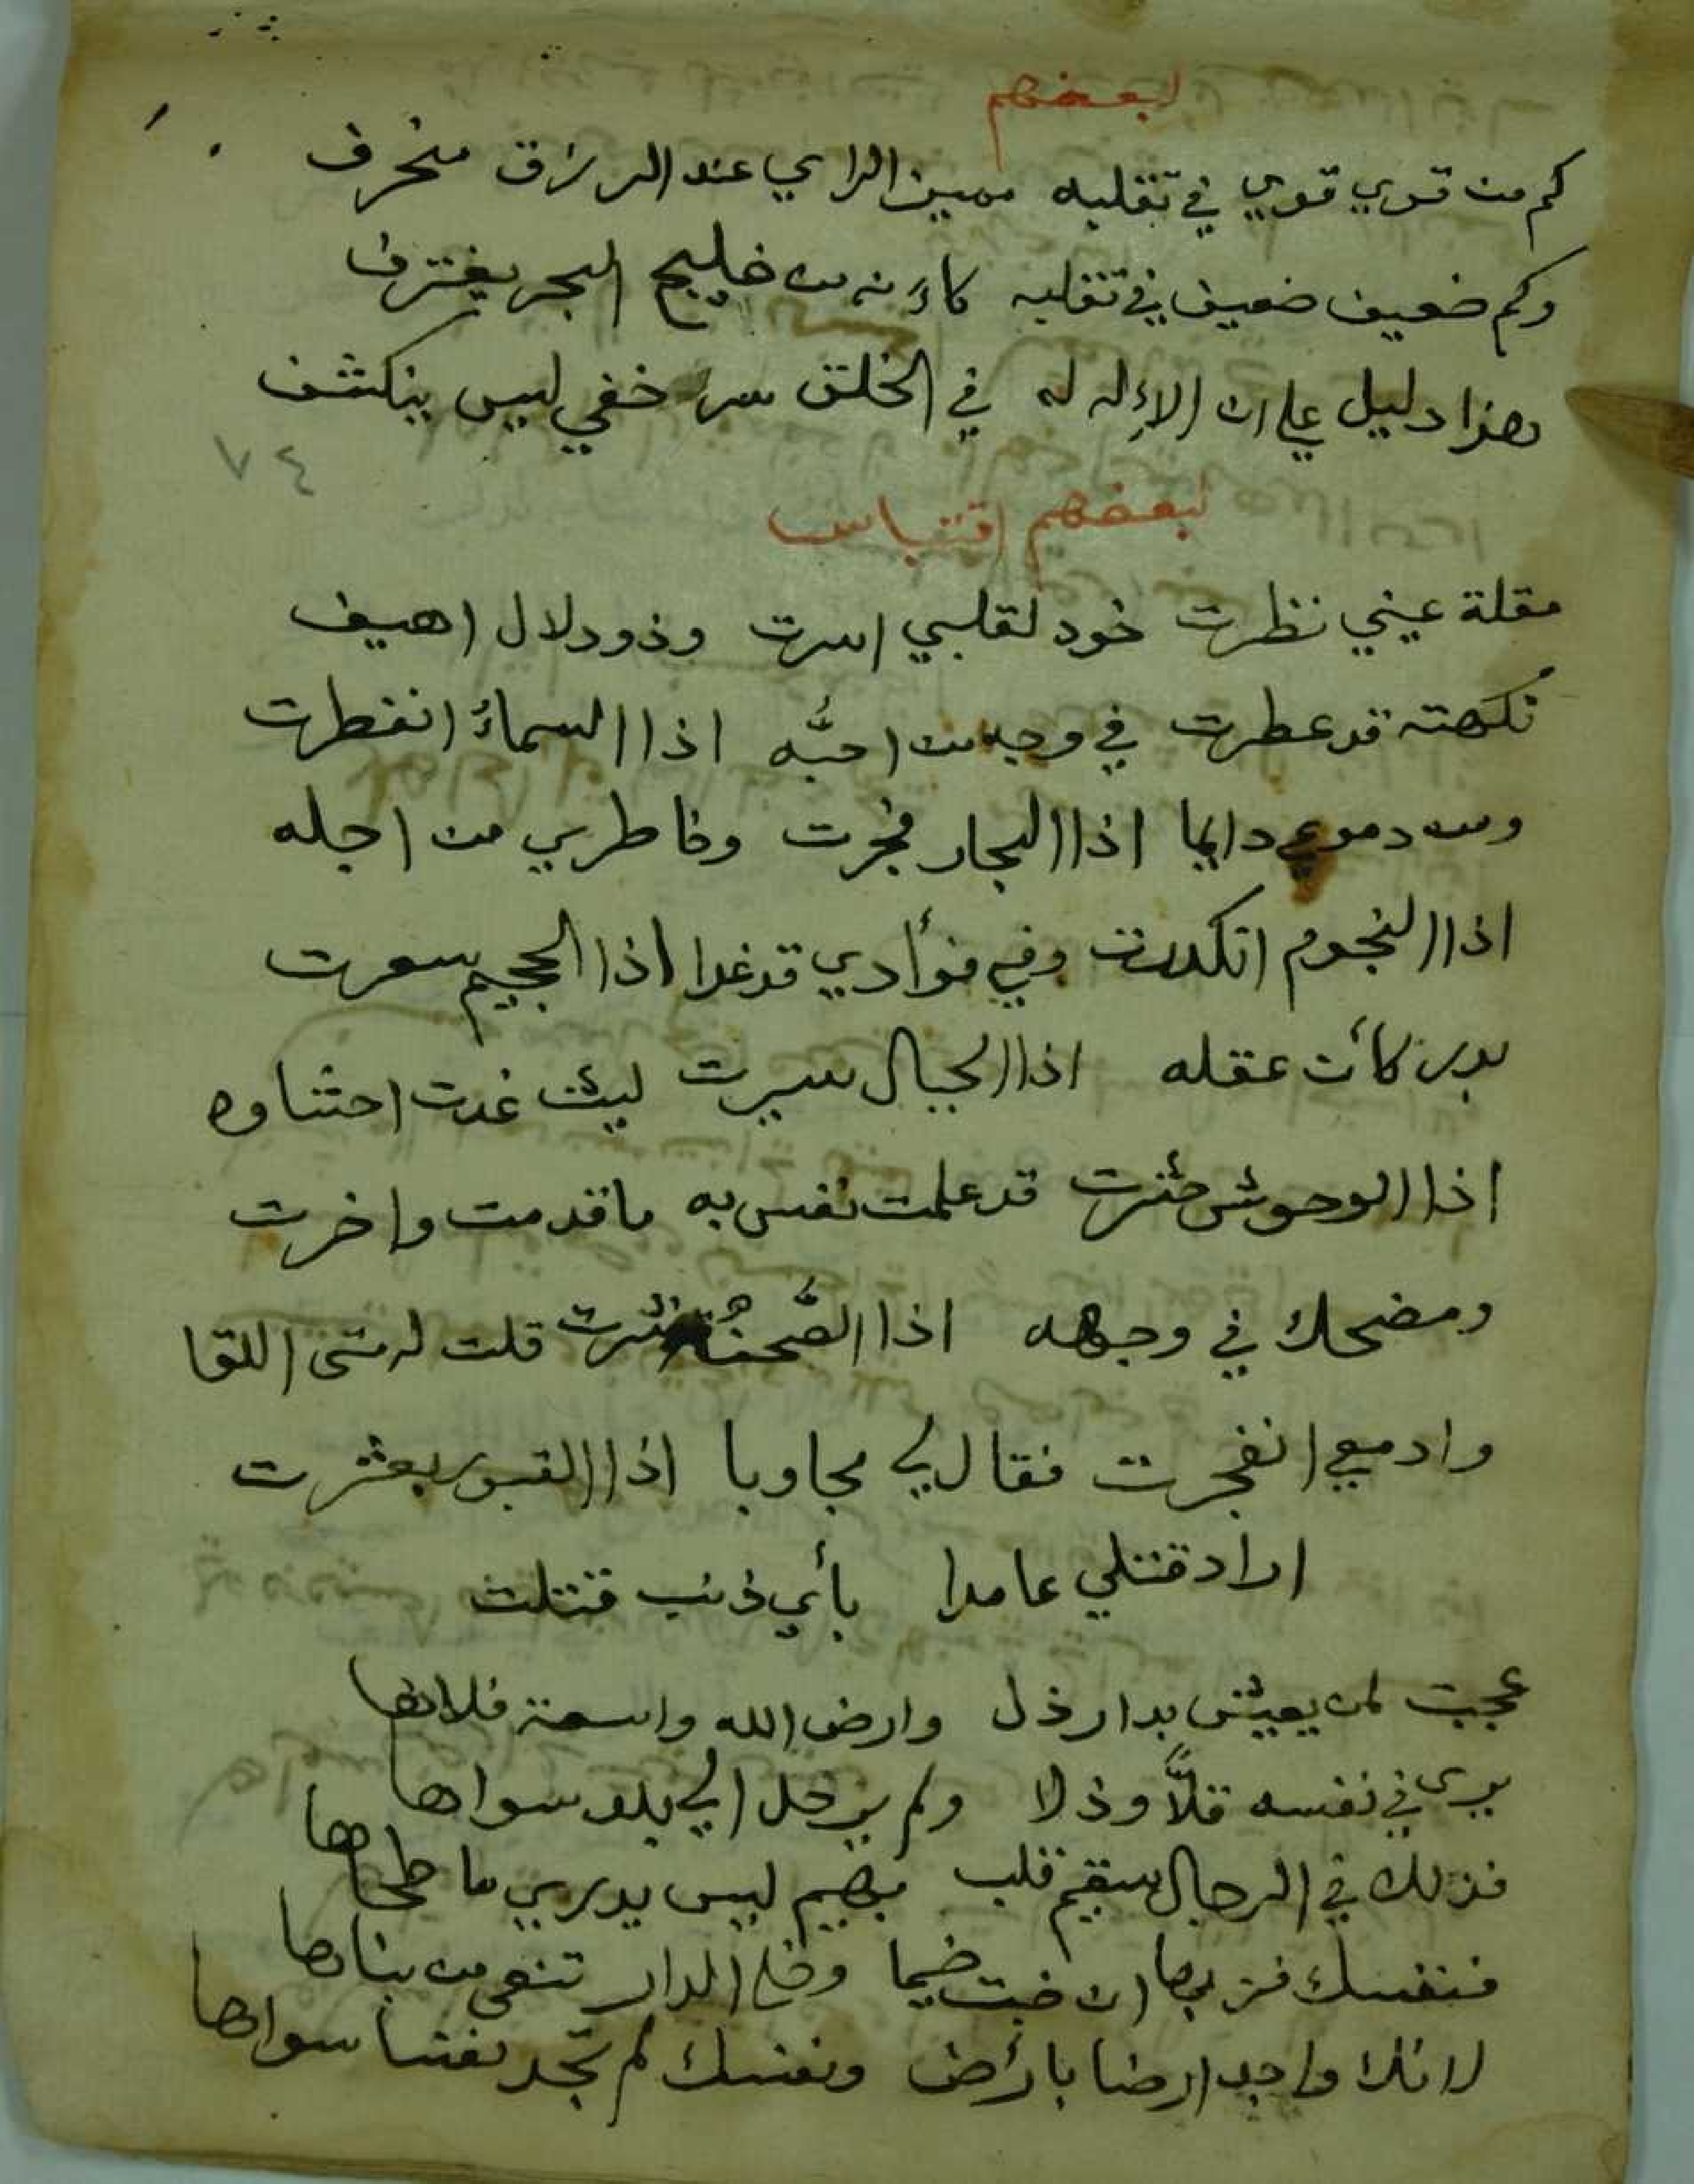 لبعضهم
كم من قوي قوي في تقلبه مهين الراي عند الرزاق منحرف
وكم ضعيف ضعيف في تقلبه كاءنه من خليج البحر يغترف
هذا دليل على ان الإله له في الخلق سر خفي ليس ينكشف
٧٤
لبعضهم اقتباس
مقلة عيني نظرت خود لقلبي اسرت وذو دلال اهيف
نكهته قد عطرت في وجه من احبه اذا السماء انفطرت
ومن دموعي دايما اذا البحار فجرت وخاطري من اجله
اذا النجوم انكدرت وفي فؤادي قد غدا اذا الجحيم سعرت
بدر كأن عقله اذا الجبال سيرت ليث غدت احشاوه
اذا الوحوش حشرت قد علمت نفس به ما قدمت واخرت
ومضحك في وجهه اذا الصحف نشرت قلت له متى اللقا
وادمعي انفجرت فقال لي مجاوبا اذا القبور بعثرت
اراد قتلي عامدا بأي ذنب قتلت
عجبت لمن يعيش بدار ذل وارض الله واسعة فلاها
يرى في نفسه قلاًّ وذلا ولم يرحل الى بلد سواها
فذلك في الرجال سقيم قلب بهيم ليس يدري ما طحاها
فنفسك فز بها ان خفت ضيما وخل الدار تنعى من بناها
لانك واجد ارضا بارض ونفسك لم تجد نفسا سواها